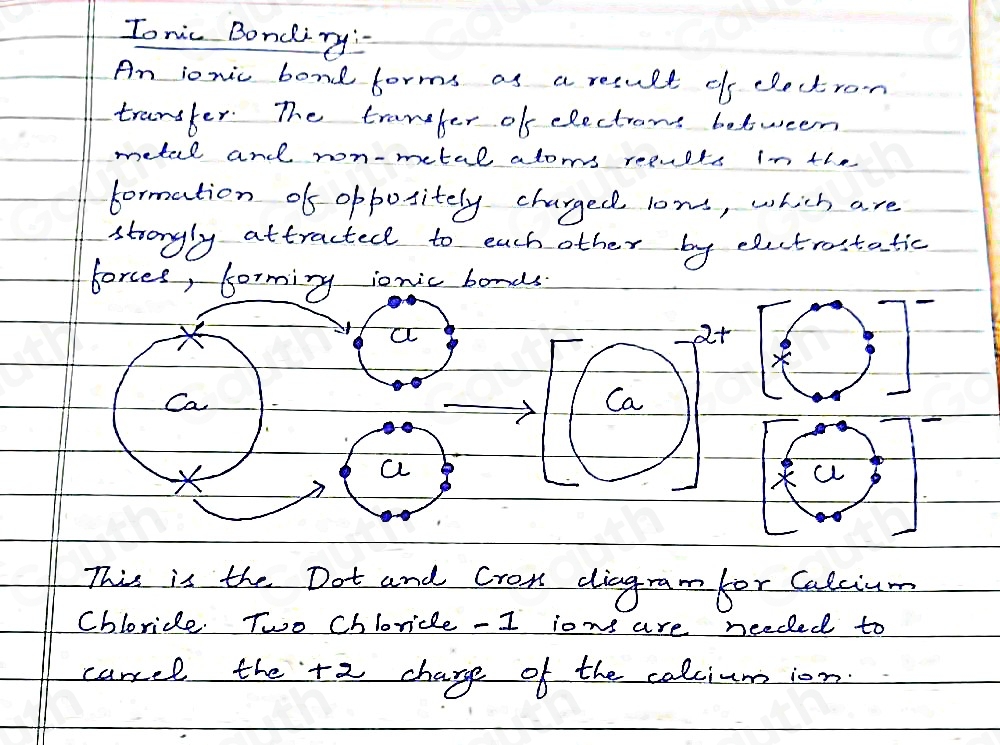 Ionic Bonding:-
An ionic bond forms as a result of electron
transfer. The transfer of electrons between
metal and non-metal atoms results in the
formation of oppositely charged ions, which are
strongly attracted to each other by electrostatic
forces, forming ionic bonds.
Ca Cl Ca 2+ -
Cl Cl -
This is the Dot and Cross diagram for Calcium
Chloride. Two Chloride -1 ions are needed to
cancel the +2 charge of the calcium ion.
Gauth